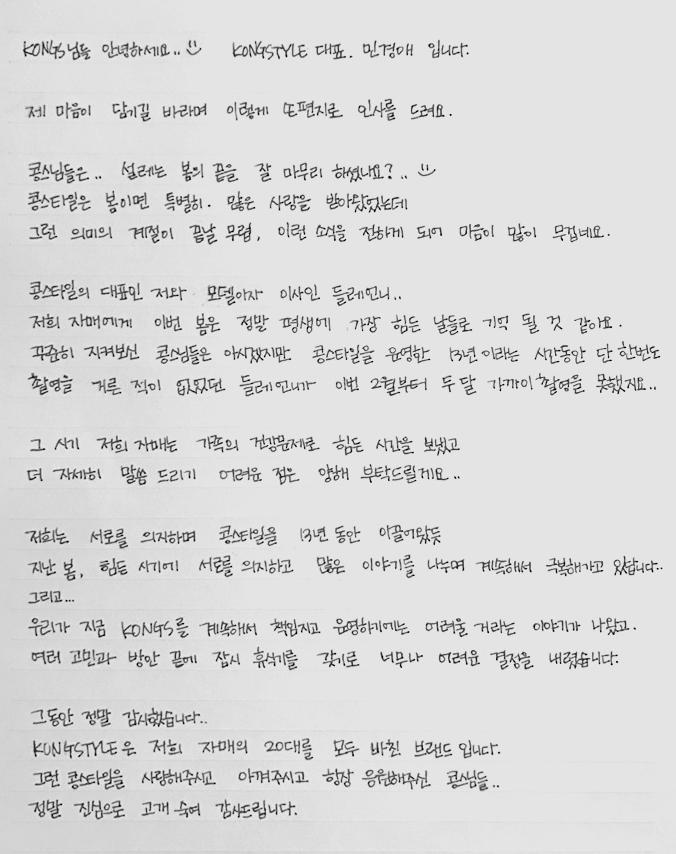 KONGS님들 안녕하세요.. KONGSTYLE 대표. 민경애 입니다.
제 마음이 담기길 바라며 이렇게 손편지로 인사를 드려요.
콩스님들은.. 설레는 봄의 끝을 잘 마무리 하셨나요?..
콩스타일은 봄이면 특별히. 많은 사랑을 받아왔었는데
그런 의미의 계절이 끝날 무렵, 이런 소식을 전하게 되어 마음이 많이 무겁네요.
콩스타일의 대표인 저와 모델이자 이사인 들레언니..
저희 자매에게 이번 봄은 정말 평생에 가장 힘든 날들로 기억 될 것 같아요.
꾸준히 지켜보신 콩스님들은 아시겠지만 콩스타일을 운영한 13년이라는 시간동안 단 한번도
촬영을 거른 적이 없었던 들레언니가 이번 2월부터 두 달 가까이 촬영을 못했지요..
그 시기 저희 자매는 가족의 건강문제로 힘든 시간을 보냈고
더 자세히 말씀 드리기 어려운 점은 양해 부탁드릴게요..
저희는 서로를 의지하며 콩스타일을 13년 동안 이끌어왔듯
지난 봄, 힘든 시기에 서로를 의지하고 많은 이야기를 나누며 계속해서 극복해가고 있습니다..
그리고...
우리가 지금 KONGS를 계속해서 책임지고 운영하기에는 어려울 거라는 이야기가 나왔고.
여러 고민과 방안 끝에 잠시 휴식기를 갖기로 너무나 어려운 결정을 내렸습니다.
그동안 정말 감사했습니다..
KONGSTYLE은 저희 자매의 20대를 모두 바친 브랜드입니다.
그런 콩스타일을 사랑해주시고 아껴주시고 항상 응원해주신 콩스님들..
정말 진심으로 고개 숙여 감사드립니다.